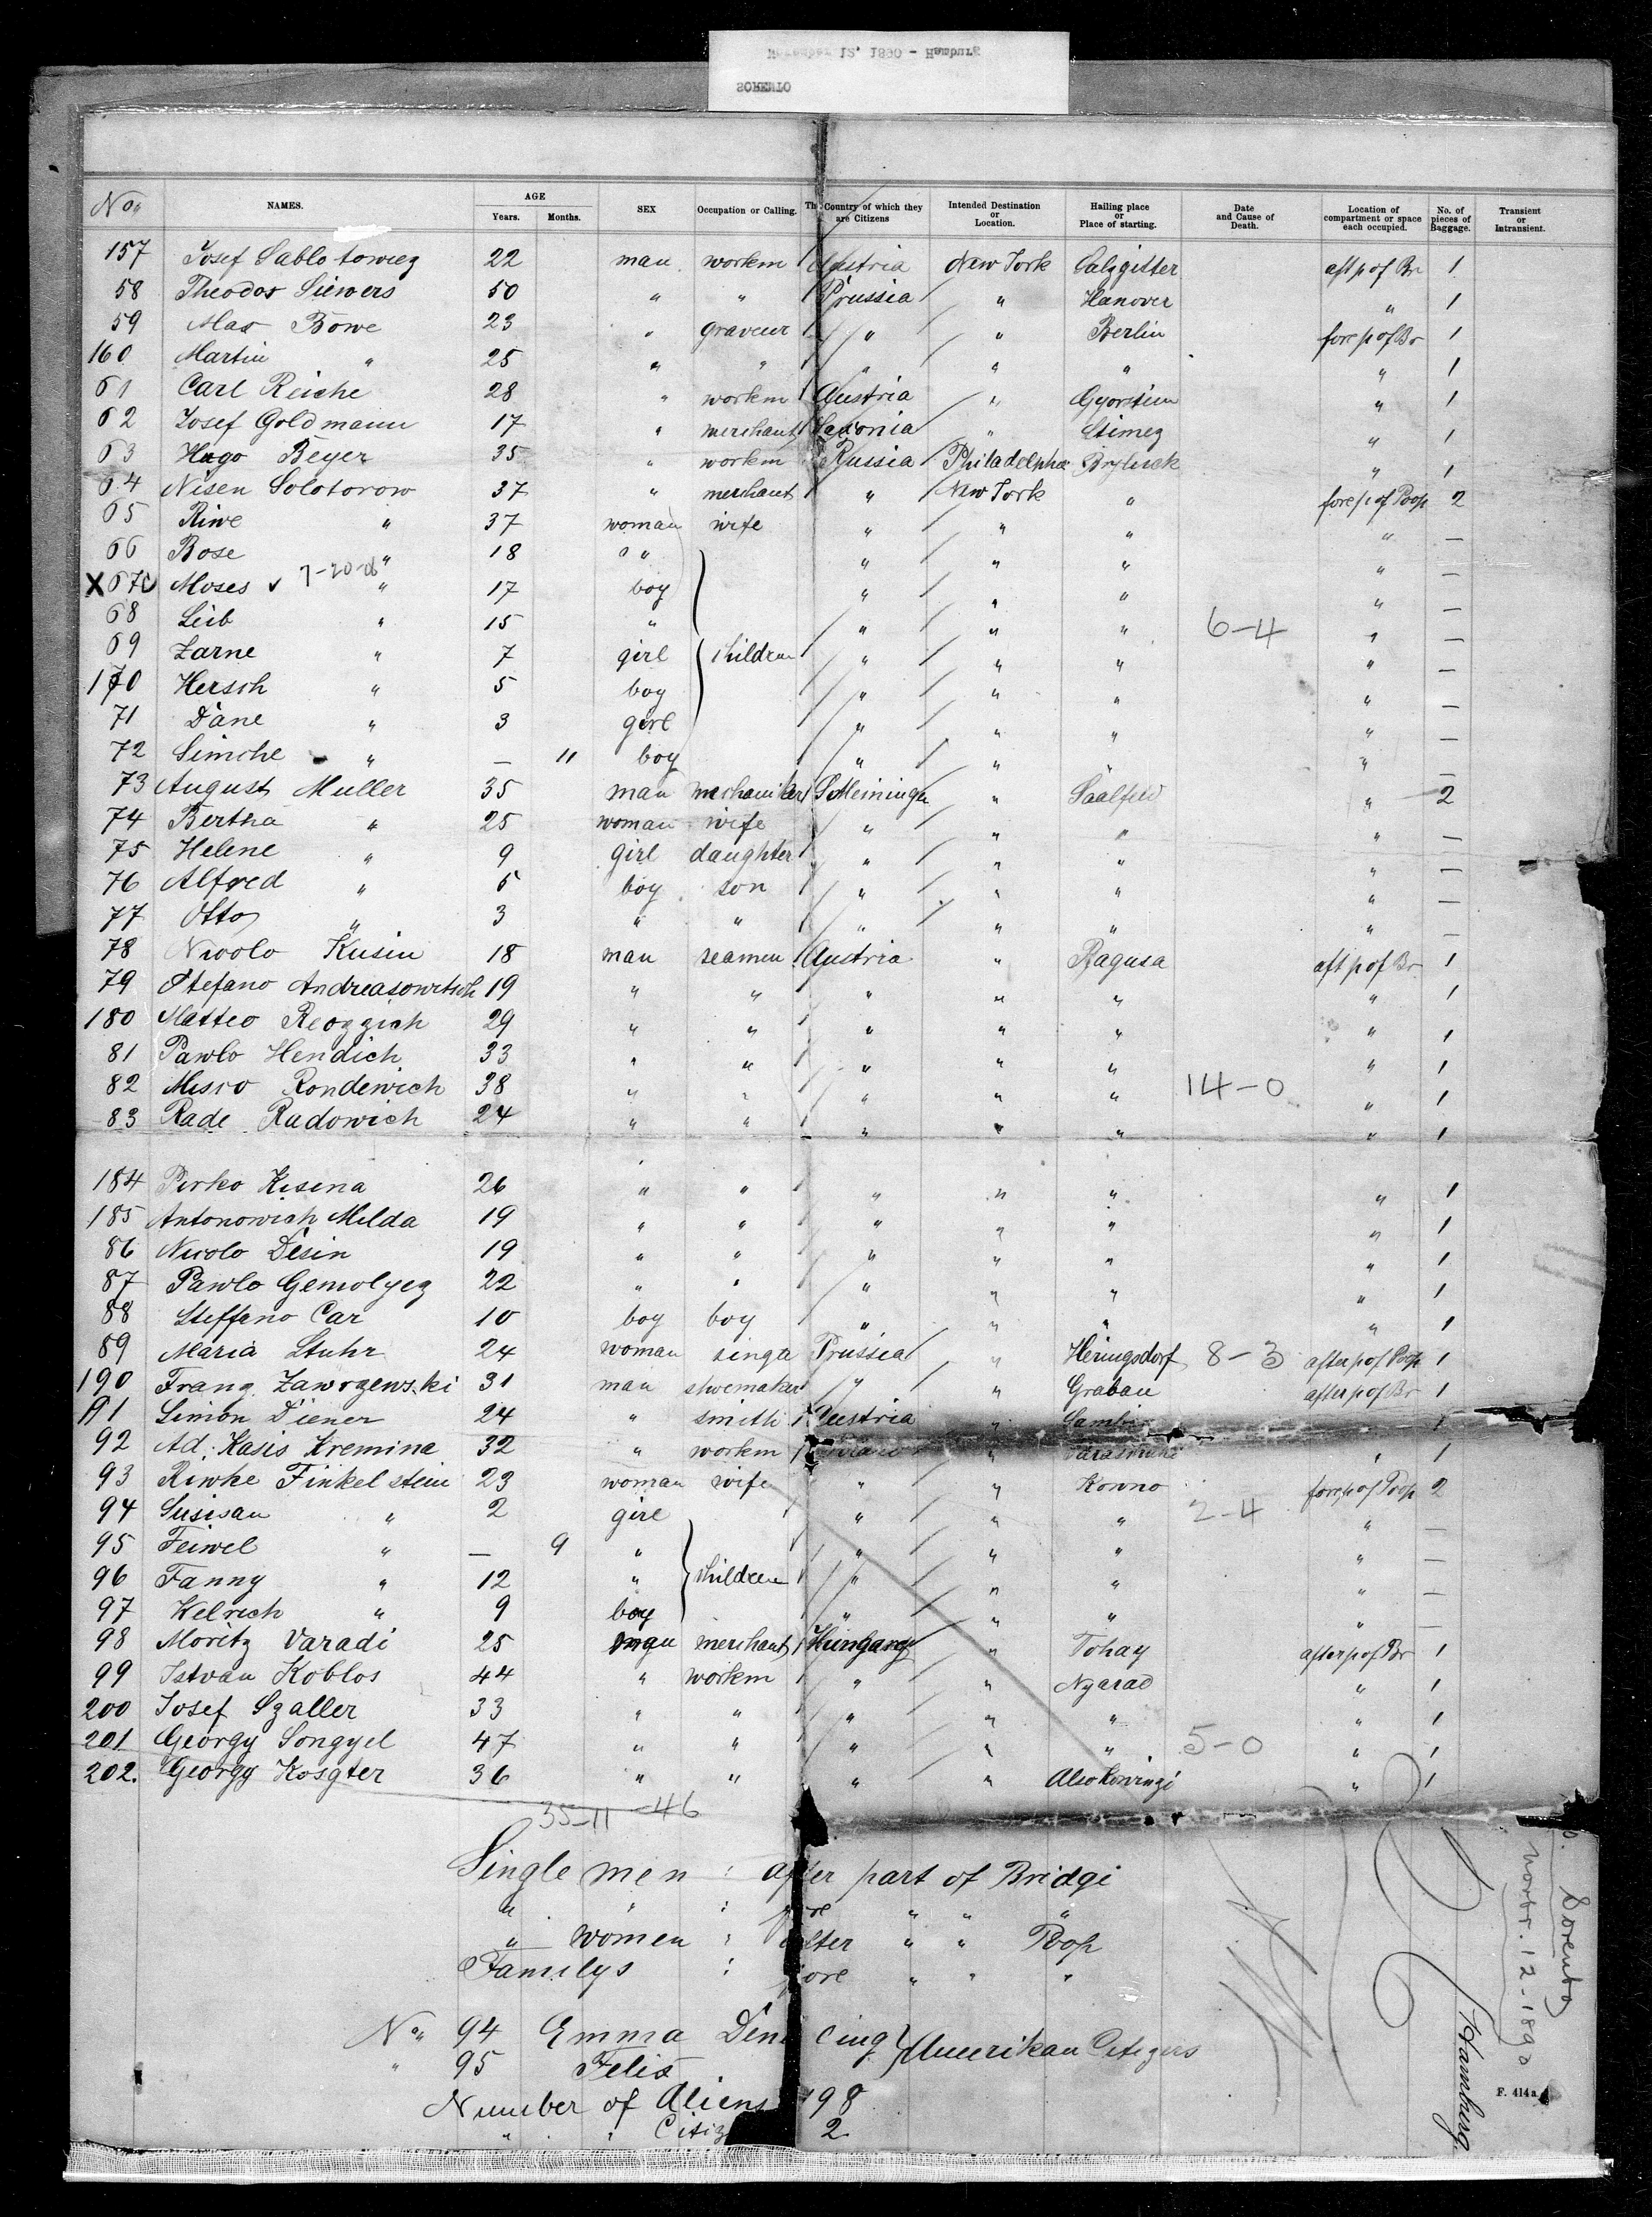 November 12, 1890 - Hamburg
SORENTO
No. NAMES. AGE Years. Months. SEX Occupation or Calling. The Country of which they are Citizens Intended Destination or Location. Hailing place or Place of starting. Date and Cause of Death. Location of compartment or space each occupied. No. of pieces of Baggage. Transient or Intransient.
157 Josef Sablotowicz 22 man workm Austria New York Salzgitter aft p of Br 1
58 Theodor Siewers 50 " " Prussia " Hanover " 1
59 Max Bowe 23 " graveur " " Berlin fore p of Br 1
160 Martin " 25 " " " " " " 1
61 Carl Reiche 28 " workm Austria " " 1
62 Josef Goldmann 17 " merchant Saxonia " " 1
63 Hugo Beyer 35 " workm Russia Philadelphia " 1
64 Nisen Solotorow 37 " merchant " New York " fore p of Poop 2
65 Riwe " 37 woman wife " " " " —
66 Rose " 18 " " " " " —
X 67 Moses v 7-20-06 " 17 boy " " " " —
68 Leib " 15 " " " " 6-4 " —
69 Zarne " 7 girl children " " " " —
170 Hersch " 5 boy " " " " —
71 Dane " 3 girl " " " " —
72 Simche " — 11 boy " " " " —
73 August Muller 35 man mechaniker S Meiningen " Saalfeld " 2
74 Bertha " 25 woman wife " " " " —
75 Helene " 9 girl daughter " " " " —
76 Alfred " 5 boy son " " " " —
77 Otto " 3 " " " " " " —
78 Nicolo Kusin 18 man seamen Austria " Ragusa aft p of Br 1
79 Stefano Andreasowitsch 19 " " " " " " 1
180 Matteo Reozzich 29 " " " " " " 1
81 Pawlo Hendich 33 " " " " " " 1
82 Misco Rondewich 38 " " " " " 14-0 " 1
83 Rade Radowich 24 " " " " " " 1
184 Perko Kisena 26 " " " " " " 1
185 Antonowich Milda 19 " " " " " " 1
86 Nicolo Desin 19 " " " " " " 1
87 Pawlo Gemolyez 22 " " " " " " 1
88 Steffano Car 10 boy boy " " " " 1
89 Maria Stuhr 24 woman singa Prussia " Heringsdorf 8-3 after p of Poop 1
190 Franz Zawrzewski 31 man shoemaker " " Grabau after p of Br 1
191 Simon Diener 24 " smith Austria " 1
92 Ad. Kasis Kremina 32 " workm " " 1
93 Riwke Finkelstein 23 woman wife " " Kowno fore p of Poop 2
94 Susisan " 2 girl " " " 2-4 " —
95 Feiwel " — 9 " " " " " —
96 Fanny " 12 " children " " " " —
97 Kelrich " 9 boy " " " " —
98 Moritz Varadi 25 man merchant Hungary " Tokay after p of Br 1
99 Istvan Koblos 44 " workm " " Nyarad " 1
200 Josef Szaller 33 " " " " " " 1
201 Georgy Songyel 47 " " " " " 5-0 " 1
202. Georgy Kosgter 36 " " " " " 1
35-11-46
Single men : after part of Bridge
" " : fore " " "
" women : after " " Poop
Familys : fore " " "
No. 94 Emma Den cing } Amerikan Citizens
" 95 Felix
Number of Aliens 198
" " Citiz 2
Sorento
Novbr. 12-1890
Hamburg
F. 414a